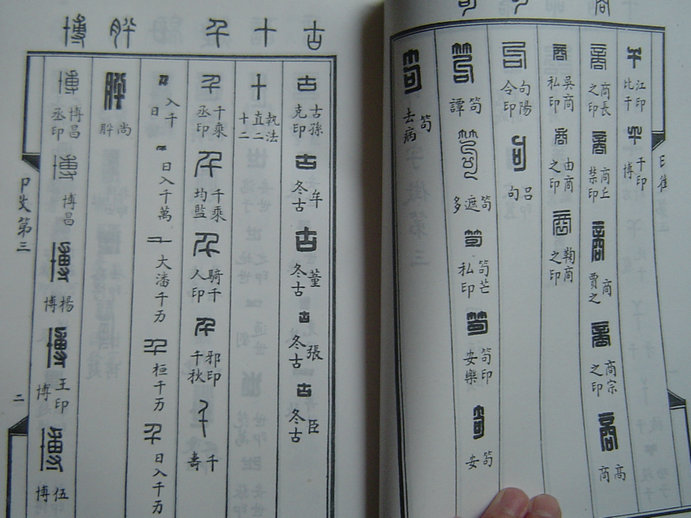 干 江印比干
干 干印博
商 商長之印
商 商丘禁印
商 商賈之
商 商宗之印
商 高商
商 吳商私印
商 由商之印
商 翰商之印
句 句陽令印
句 呂句
笱 笱譚
笱 笱遮多
笱 笱芒私印
笱 笱印安樂
笱 笱安
笱 笱去病
古十千博
古 古孫克印
古 牟冬古
古 董冬古
古 張冬古
古 臣冬古
十 執法直二十二
千 千乘丞印
千 千乘均監
千 騎千人印
千 邪印千秋
千 千壽
千 日入千
千 日入千萬
千 大潘千万
千 桓千万
千 日入千万
肸 尚肸
博 博昌丞印
博 博昌
博 楊博
博 王印博
博 伍博
印文第三
二